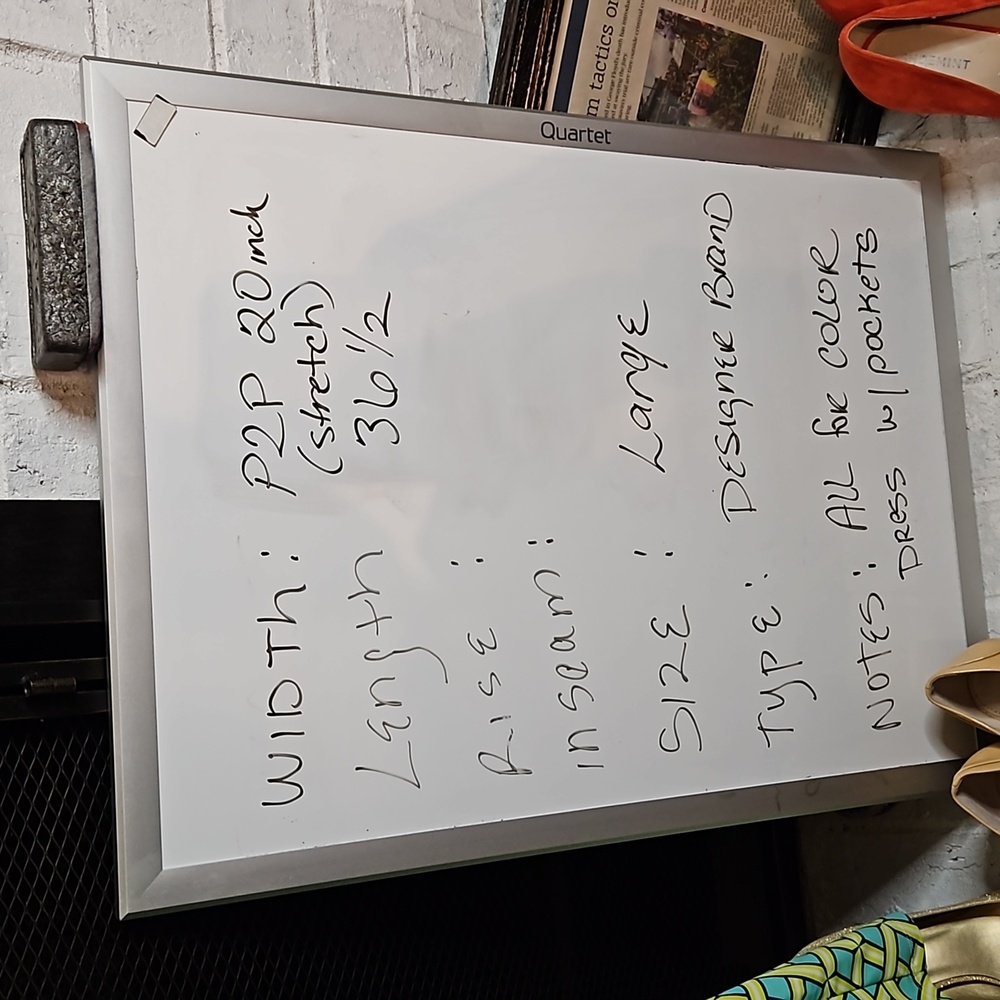 WIDTH: P2P 20 inch
(stretch)
Length 36 1/2
RISE:
inseam:
SIZE: Large
TYPE: DESIGNER BRAND
NOTES: ALL for COLOR
DRESS w/pockets
Quartet
m tactics on